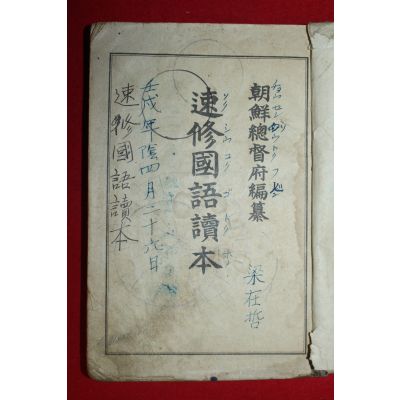 朝鮮總督府編纂
速修國語讀本
壬戌年陰四月二十六日
速修國語讀本
梁在哲